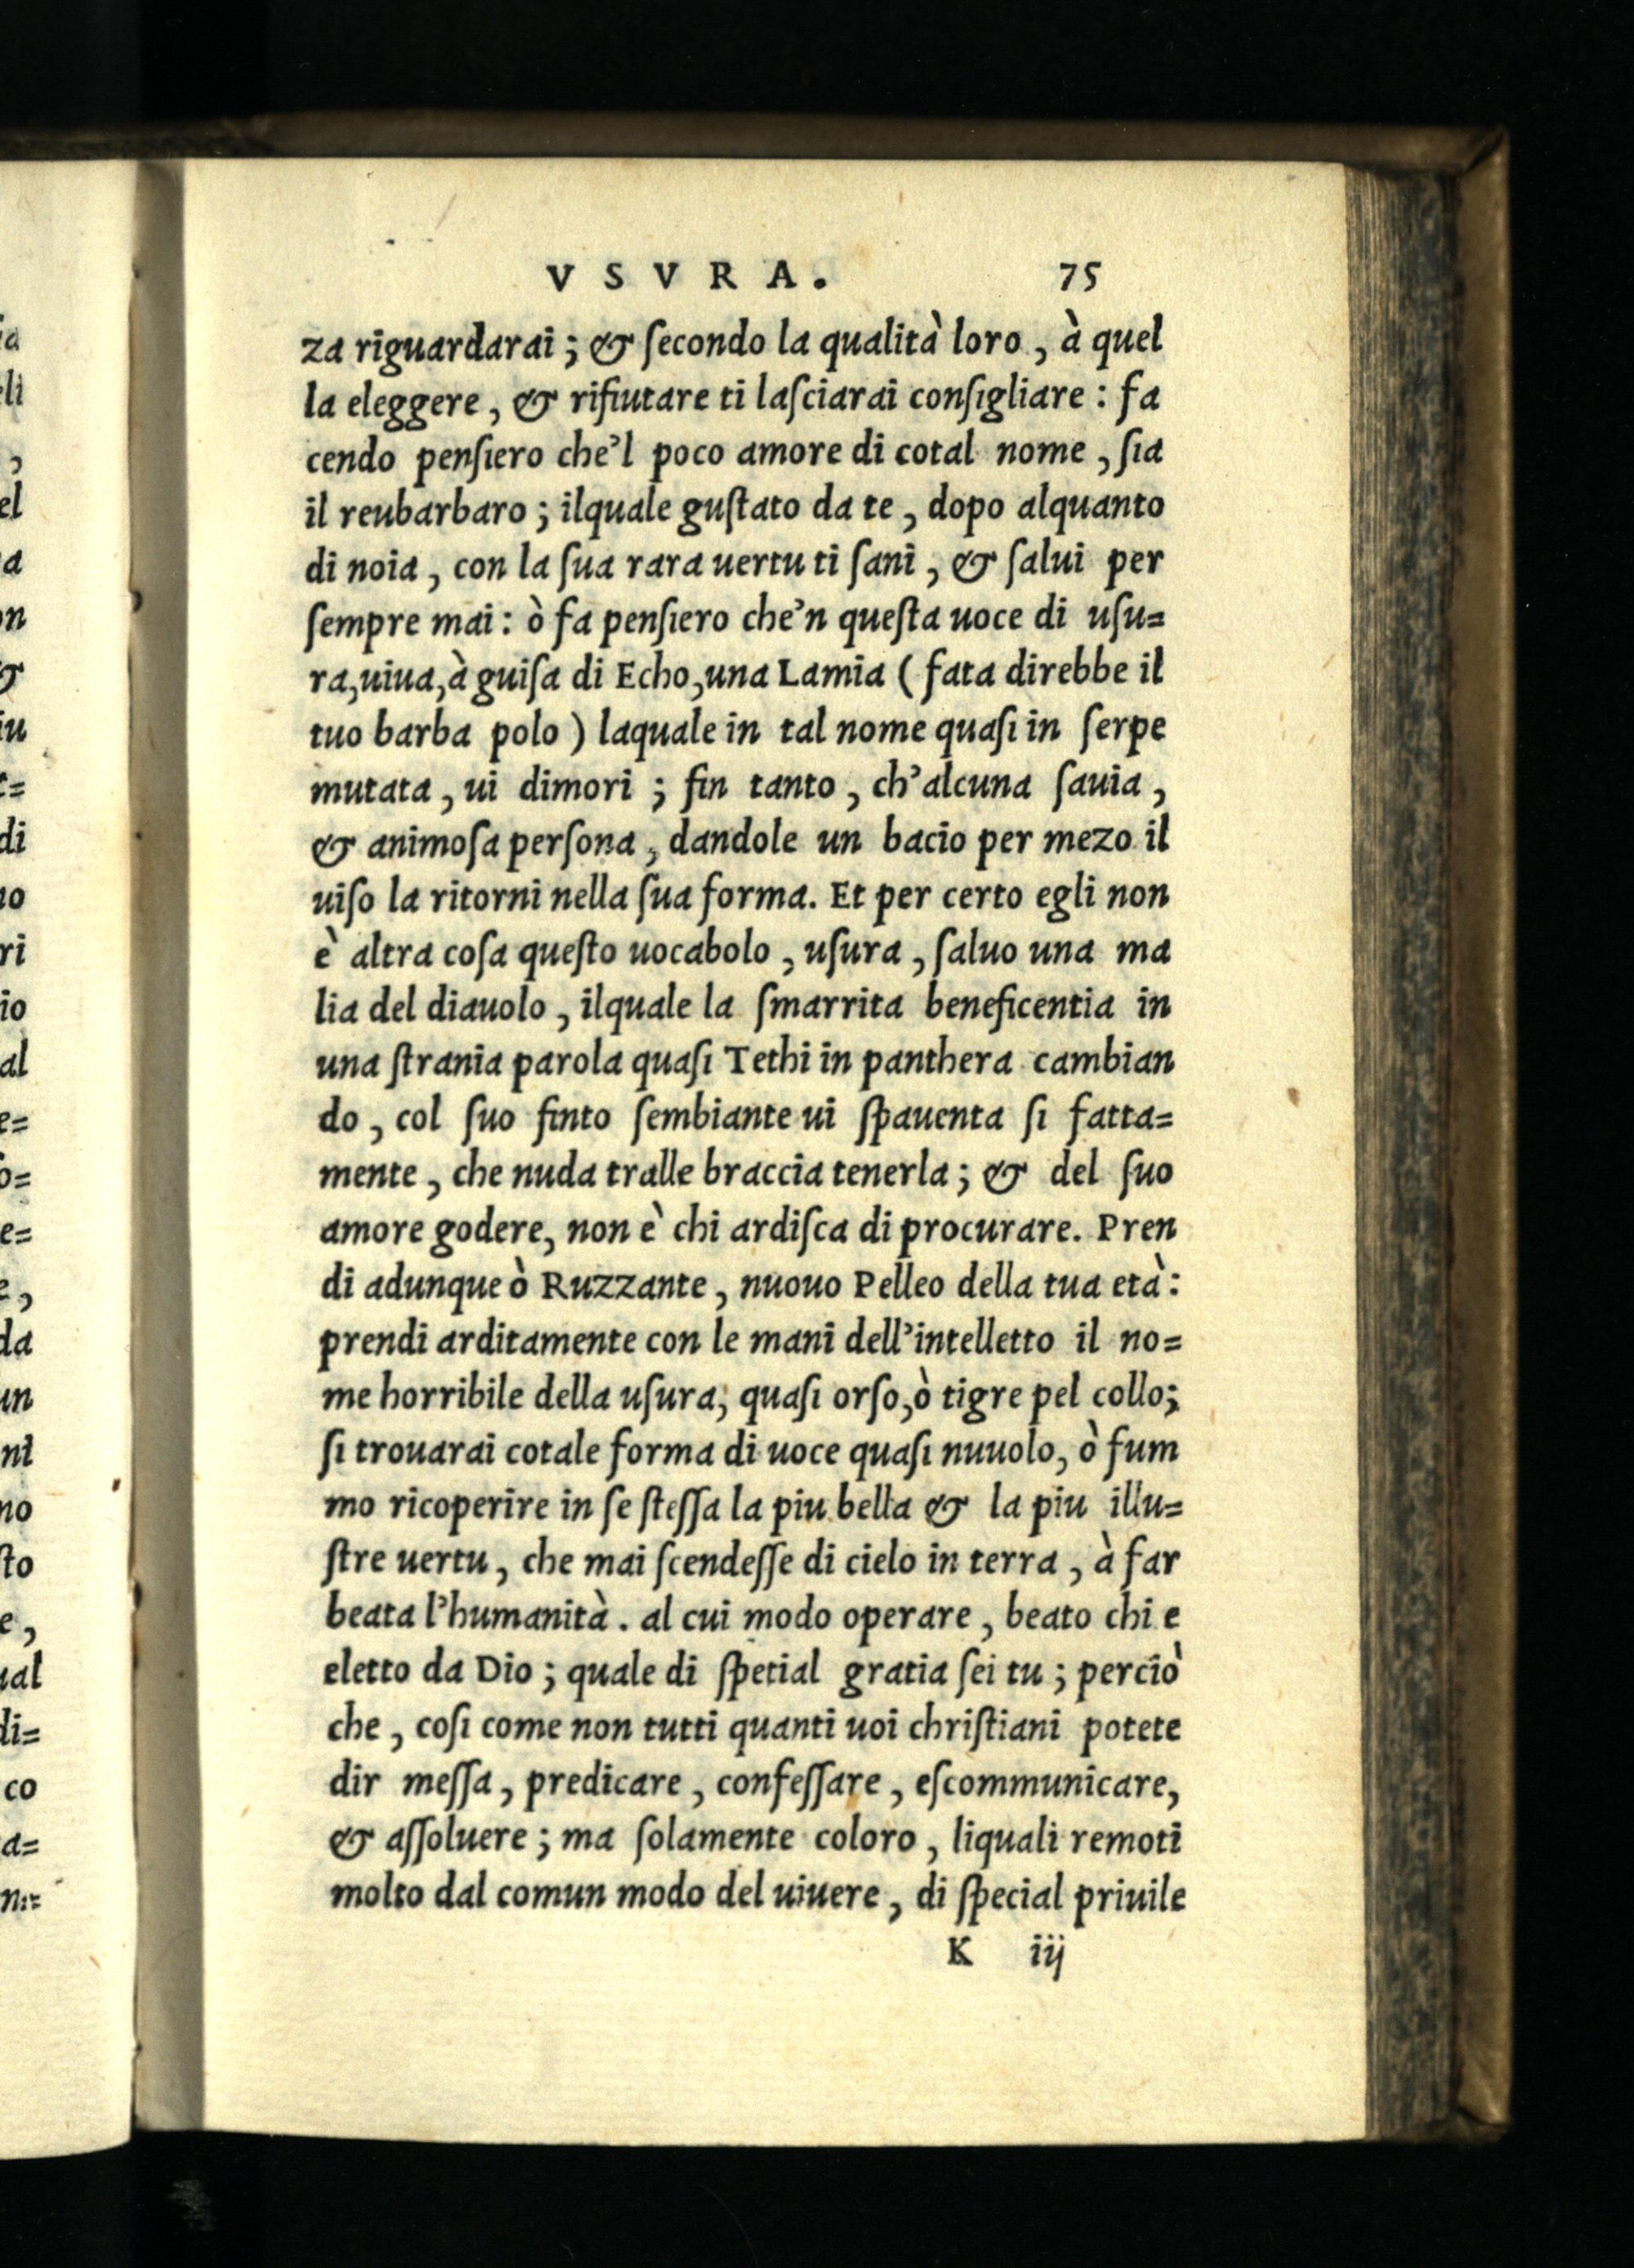 VSVRA. 75
za riguardarai; & ſecondo la qualità loro, à quel
la eleggere, & rifiutare ti laſciarai conſigliare: fa
cendo penſiero che'l poco amore di cotal nome, ſia
il reubarbaro; ilquale guſtato da te, dopo alquanto
di noia, con la ſua rara uertu ti ſani, & ſalui per
ſempre mai: ò fa penſiero che'n queſta uoce di uſu=
ra, uiua, à guiſa di Echo, una Lamia (fata direbbe il
tuo barba polo) laquale in tal nome quaſi in ſerpe
mutata, ui dimori; fin tanto, ch'alcuna ſauia,
& animoſa perſona, dandole un bacio per mezo il
uiſo la ritorni nella ſua forma. Et per certo egli non
è altra coſa queſto uocabolo, uſura, ſaluo una ma
lia del diauolo, ilquale la ſmarrita beneficentia in
una ſtrania parola quaſi Tethi in panthera cambian
do, col ſuo finto ſembiante ui ſpauenta ſi fatta=
mente, che nuda tralle braccia tenerla; & del ſuo
amore godere, non è chi ardiſca di procurare. Pren
di adunque ò Ruzzante, nuouo Pelleo della tua età:
prendi arditamente con le mani dell'intelletto il no=
me horribile della uſura, quaſi orſo, ò tigre pel collo;
ſi trouarai cotale forma di uoce quaſi nuuolo, ò fum
mo ricoperire in ſe ſteſſa la piu bella & la piu illu=
ſtre uertu, che mai ſcendeſſe di cielo in terra, à far
beata l'humanità. al cui modo operare, beato chi e
eletto da Dio; quale di ſpetial gratia ſei tu; perciò
che, coſi come non tutti quanti uoi chriſtiani potete
dir meſſa, predicare, confeſſare, eſcommunicare,
& aſſoluere; ma ſolamente coloro, liquali remoti
molto dal comun modo del uiuere, di ſpecial priuile
K iij